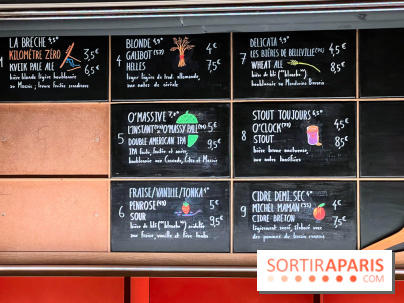 LA BRÈCHE 4,9°
KILOMÈTRE ZÉRO 3,5€
KVEIK PALE ALE 6,5€
bière blonde légère houblonnée
au Mosaic; fruits
4 BLONDE 4,9°
GALIBOT (57) 4€
HELLES 7,5€
lager légère de trad. allemande,
aux notes de céréale
7 DELICATA 4,9°
LES BIÈRES DE BELLEVILLE 4€
WHEAT ALE 7,5€
bière de blé ("blanche")
houblonnée au Mandarina Bavaria
5 O'MASSIVE
L'INSTANT O'MASSY PALL 5€
DOUBLE AMERICAN IPA 9,5€
IPA forte, fruitée et amère,
houblonnée aux Cascade, Citra et Mosaic
8 STOUT TOUJOURS
O'CLOCK 4,5€
STOUT 8,5€
bière brune nocturne,
aux notes torréfiées
6 FRAISE/VANILLE/TONKA
PENROSE 5€
SOUR 9,5€
bière de blé ("blanche") acidulée
aux fraise, vanille et fève tonka
9 CIDRE DEMI-SEC
MICHEL MAMAN 4€
CIDRE BRETON 7,5€
légèrement sucré, élaboré avec
des pommes du bassin rennais
SORTIRAPARIS
.COM